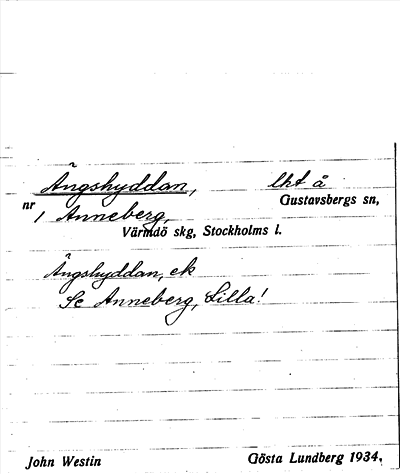 Ängshyddan, lht å
nr Gustavsbergs sn,
1 Anneberg,
Värmdö skg, Stockholms l.
Ängshyddan, ek
Se Anneberg, Lilla!
John Westin Gösta Lundberg 1934,